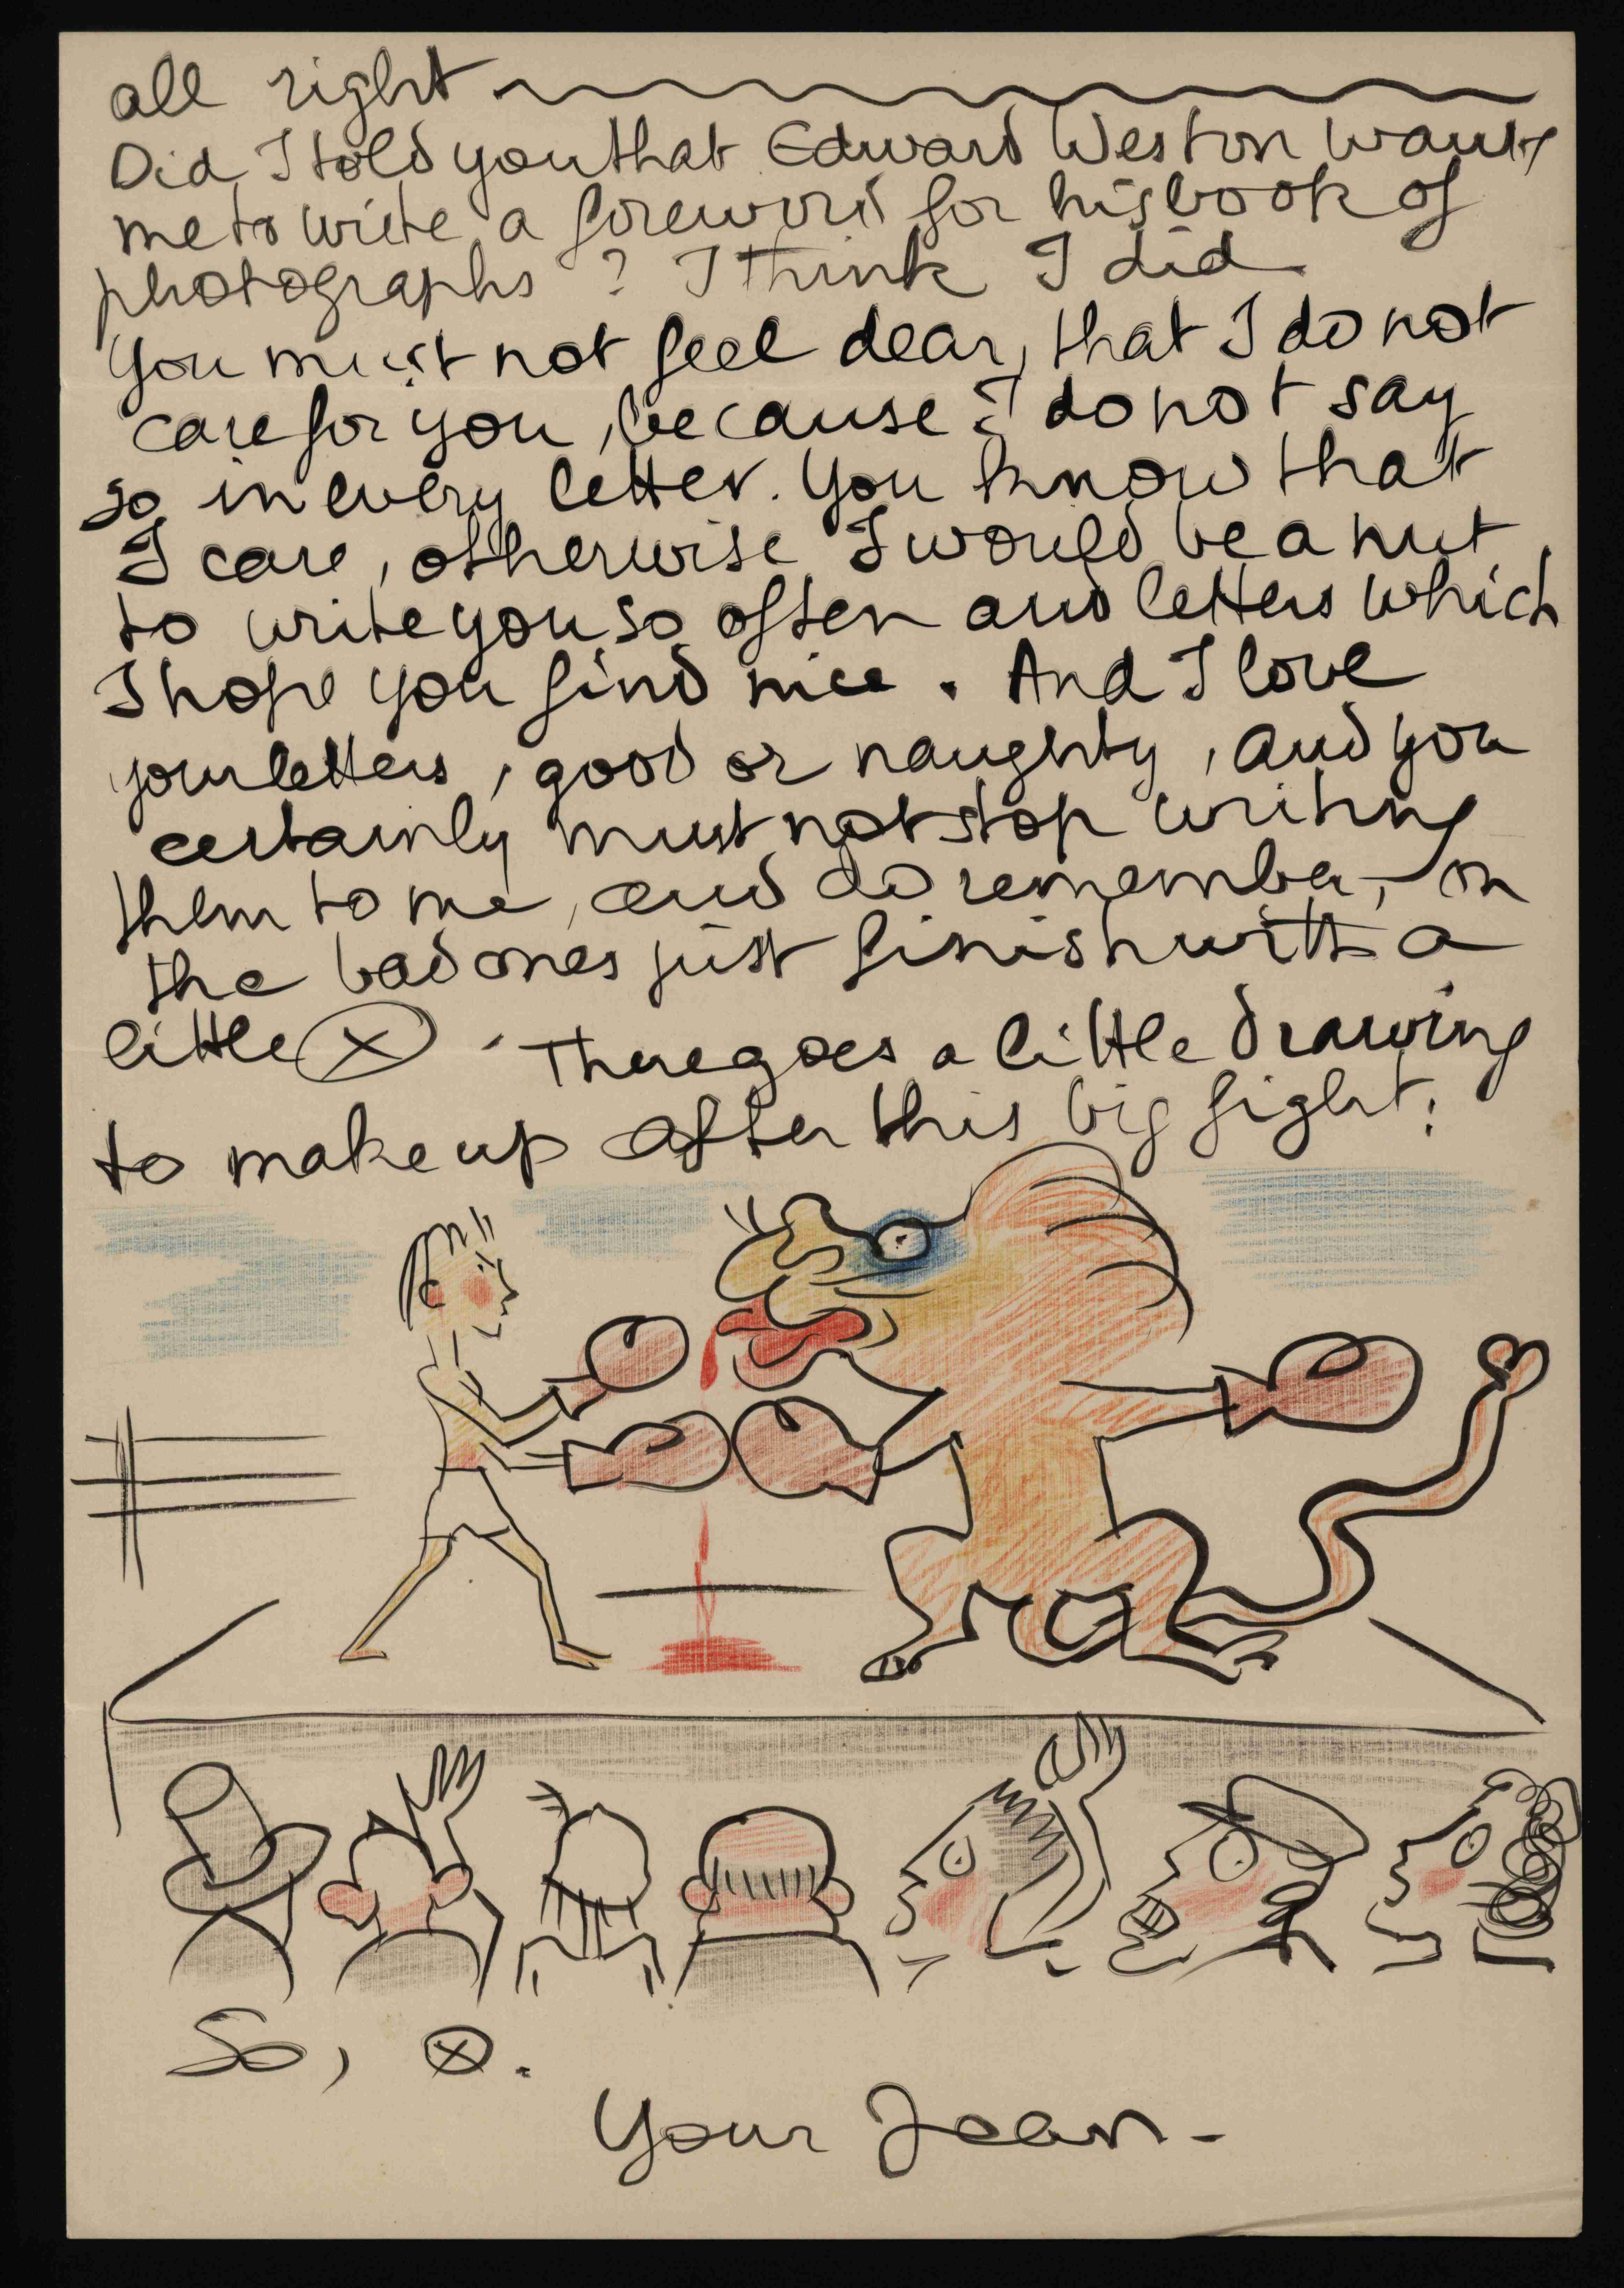 all right
Did I told you that Edward Weston wants
me to write a foreword for his book of
photographs ? I think I did
You must not feel dear, that I do not
care for you, because I do not say
so in every letter. You know that
I care, otherwise I would be a nut
to write you so often and letters which
I hope you find nice. And I love
your letters, good or naughty, and you
certainly must not stop writing
them to me, and do remember, in
the bad ones just finish with a
little ⓧ. There goes a little drawing
to make up after this big fight:
So, ⓧ.
Your Jean -